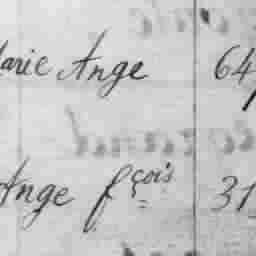 Marie Ange 64
Ange fçois 31